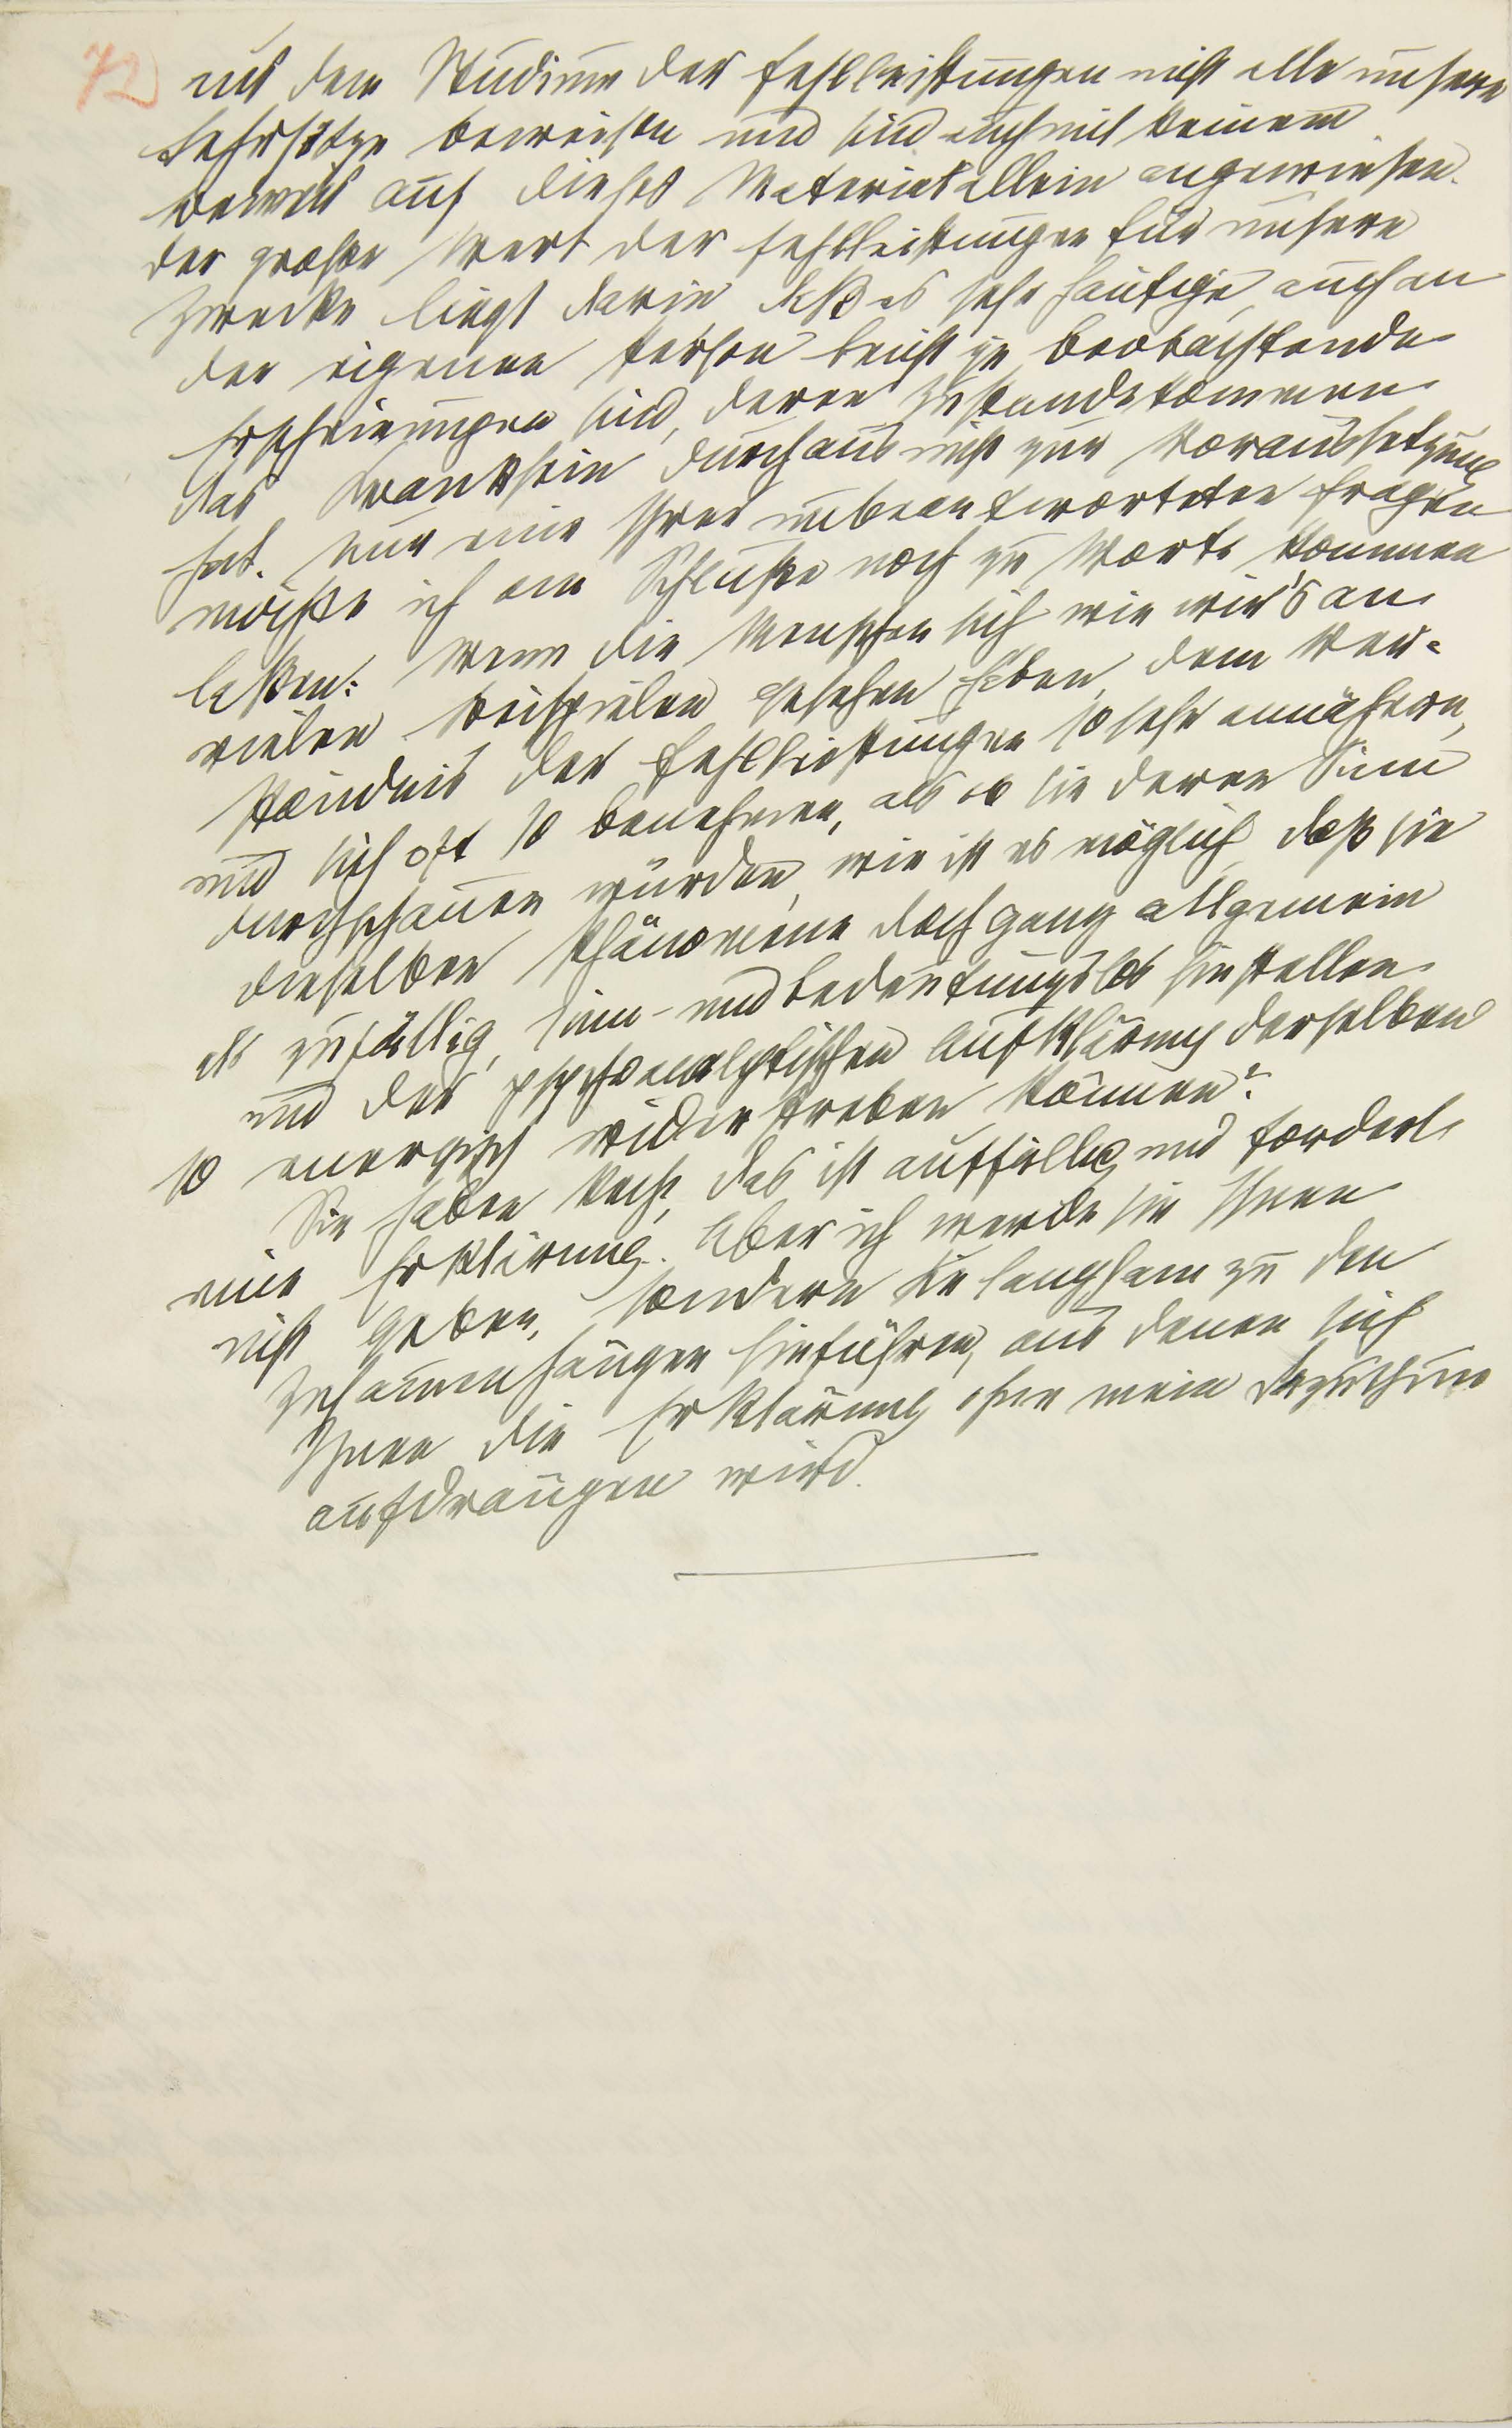 72
aus dem Studium der Fehlleistungen nicht alle unsere
Lehrsätze beweisen und sind auch mit keinem
Beweis auf dieses Material allein angewiesen.
Der große Wert der Fehlleistungen für unsere
Zwecke liegt darin daß es sehr häufige, auch an
der eigenen Person leicht zu beobachtende
Erscheinungen sind, deren Zustandekommen
das Kranksein durchaus nicht zur Voraussetzung
hat. Nur eine Ihrer unbeantworteten Fragen
möchte ich am Schluße noch zu Worte kommen
laßen: Wenn die Menschen sich wie wir's an
vielen Beispielen gesehen haben, dem Ver-
ständnis der Fehlleistungen so sehr annähern,
und sich oft so benehmen, als ob sie deren Sinn
durchschauen würden, wie ist es möglich, daß sie
dieselben Phänomene doch ganz allgemein
als zufällig, sinn- und bedeutungslos hinstellen
und der psychoanalytischen Aufklärung derselben
so energisch widerstreben können?
Sie haben Recht, das ist auffällig und fordert
eine Erklärung. Aber ich werde sie Ihnen
nicht geben, sondern Sie langsam zu den
Zusammenhängen hinführen, aus denen sich
Ihnen die Erklärung ohne mein Dazuthun
aufdrängen wird.